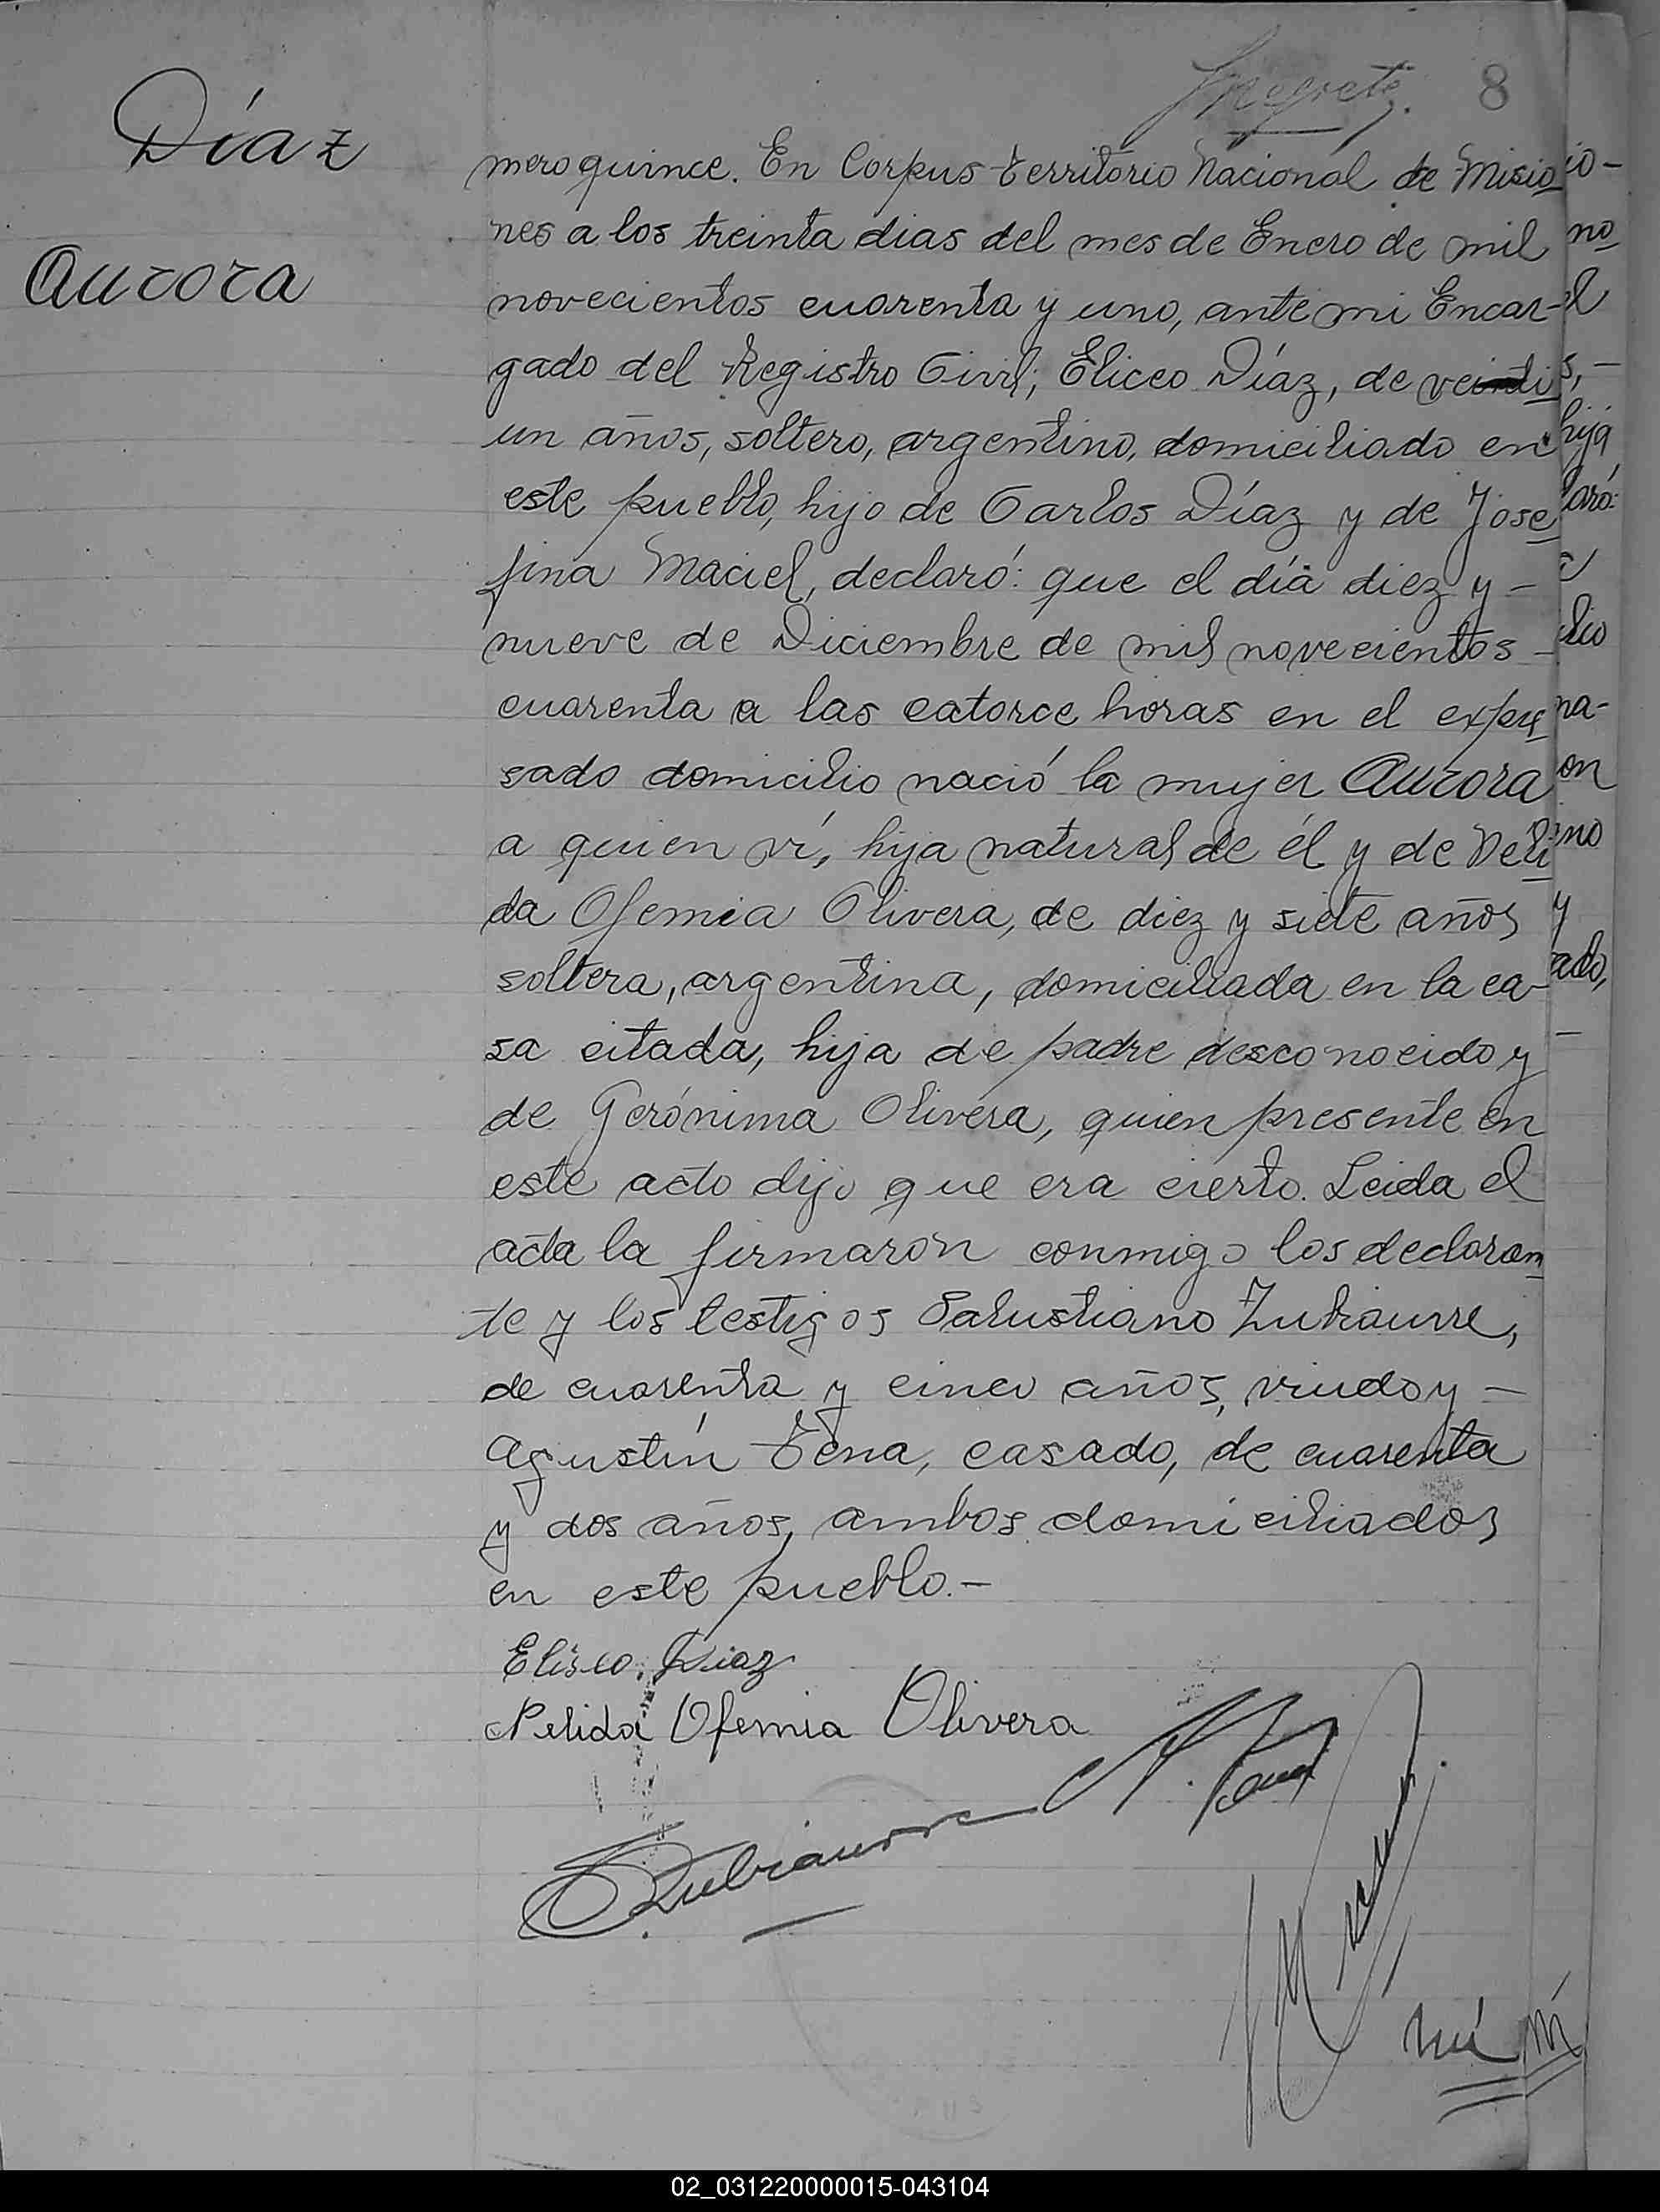 8
Díaz
Aurora
mero quince. En Corpus territorio Nacional de Misio
nes a los treinta dias del mes de Enero de mil
novecientos cuarenta y uno, ante mi Encar-
gado del Registro Civil; Eliceo Díaz, de veinti
un años, soltero, argentino, domiciliado en
este pueblo, hijo de Carlos Díaz y de Jose
fina Maciel, declaró: que el día diez y -
nueve de Diciembre de mil novecientos -
cuarenta a las catorce horas en el expre
sado domicilio nació la mujer Aurora
a quien ví, hija natural de él y de Neli
da Ofemia Olivera, de diez y siete años
soltera, argentina, domiciliada en la ca-
sa citada, hija de padre desconocido y
de Gerónima Olivera, quien presente en
este acto dijo que era cierto. Leida el
acta la firmaron conmigo los declaran
te y los testigos Salustiano Zubiaurre,
de cuarenta y cinco años, viudo y -
Agustín Tena, casado, de cuarenta
y dos años, ambos domiciliados
en este pueblo.-
Eliseo Diaz
Nelida Ofemia Olivera
Zubiaurre
nú
02_031220000015-043104